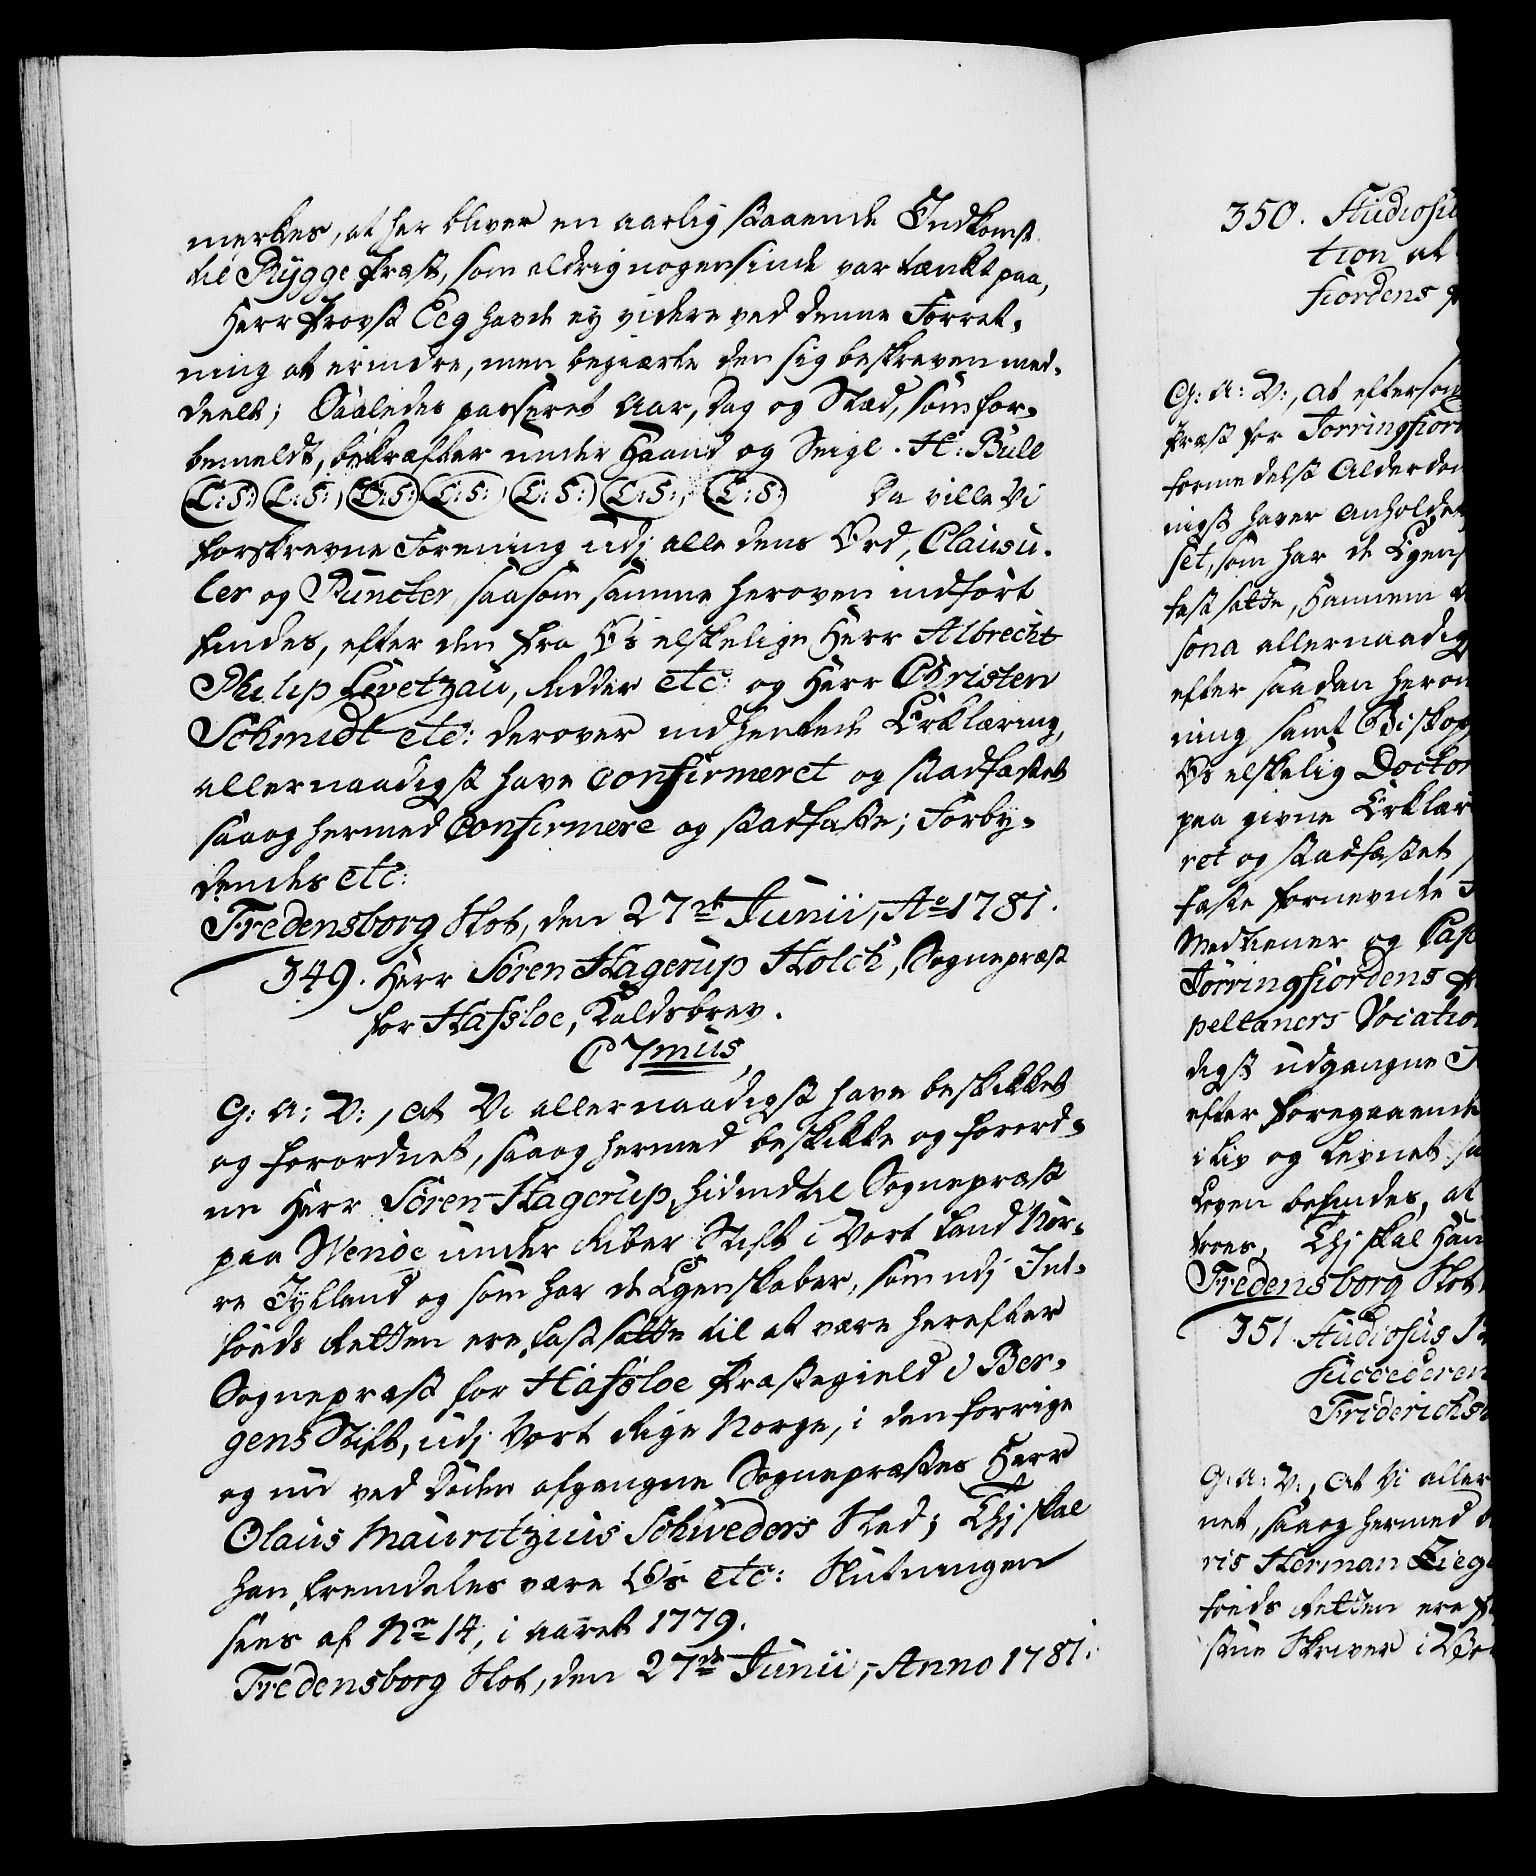 merkes, at her bliver en aarlig staaende Indkomst
til Rygge Præst, som aldrig nogensinde var tænkt paa,
Herr Provst Eeg havde ey videre ved denne Forret-
ning at erindre, men begiærte den sig beskreven med-
deelt; Saaledes passeret Aar, Dag og Stæd, som for-
bemeldt, bekræfter under Haand og Seigl. H: Bull
(L:S:) (L:S:) (L:S:) (L:S:) (L:S:) (L:S:) (L:S:) Da ville Vi
forskrevne Forening udj alle dens Ord, Clausu-
ler og Puncter, saasom samme heroven indført
findes, efter den fra Os elskelige Herr Albrecht
Philip Levetzau, Ridder etc: og Herr Christen
Schmidt etc: derover indhentede Erklæring,
allernaadigst have confirmeret og stadfæstet
saa og hermed Confirmere og stadfæste; Forby-
dendes etc:
Fredensborg Slot, den 27de Junii, Ao 1781.
349. Herr Sören Hagerup Holck, Sognepræst
for Hafsloe, Kaldsbrev.
C 7mus
G: A: V:, at Vi allernaadigst have beskikket
og forordnet, saa og hermed beskikke og forord-
ne Herr Sören Hagerup, hidindtil Sognepræst
paa Wenöe under Riber Stift i Vort Land Nör-
re Jylland og som har de Egenskaber, som udj Ind-
föeds Retten ere fastsatte til at være herefter
Sognepræst for Hafsloe Præstegield i Ber-
gens Stift, udj Vort Rige Norge, i den forrige
og nu ved Döden afgangne Sognepræstes Herr
Olaus Mauritzius Schweders Sted; Thj skal
han fremdeles være Os etc: Slutningen
sees af Nr 14, i aaret 1779.
Fredensborg Slot, den 27de Junii, Anno 1781.
350. Studiosu
tion at
fiordens
G: A: V:, at eftersom
Præst for Torringfiord
formedelst Alderdom
nigst haver anholdet
set, som har de Egens
fastsatte, Hannem
sona allernaadig
efter saadan herom
ning samt Biskop
Os elskelig Doctor
paa givne Erklær
ret og stadfæstet
fæste fornevnte
Medtiener og Cap
Törringfiordens
pellaners Vocation
digst udgangne
efter foregaaende
i Liv og Levnet
Loven befindes, at
troes, Thj skal Han
Fredensborg Slot
351 Studiosus
Succederen
Friderichs
G: A: V:, at Vi aller
net, saa og hermed
ris Herman Zieg
föeds Retten ere
stue Skriver i